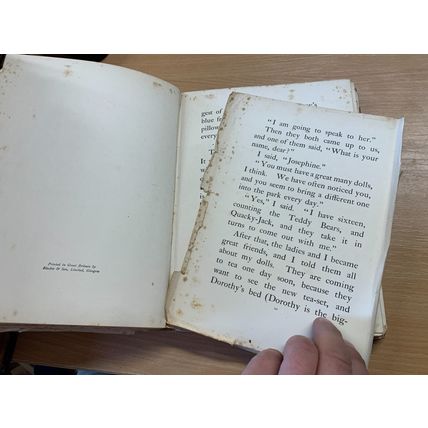 Printed in Great Britain by
Blackie & Son, Limited, Glasgow
gest of
blue fe
pillow
every
"I am going to speak to her."
Then they both came up to us,
and one of them said, "What is your
name, dear?"
I said, "Josephine."
"You must have a great many dolls,
I think. We have often noticed you,
and you seem to bring a different one
into the park every day."
"Yes," I said. "I have sixteen,
counting the Teddy Bears, and
Quacky-Jack, and they take it in
turns to come out with me."
After that, the ladies and I became
great friends, and I told them all
about my dolls. They are coming
to tea one day soon, because they
want to see the new tea-set, and
Dorothy's bed (Dorothy is the big-